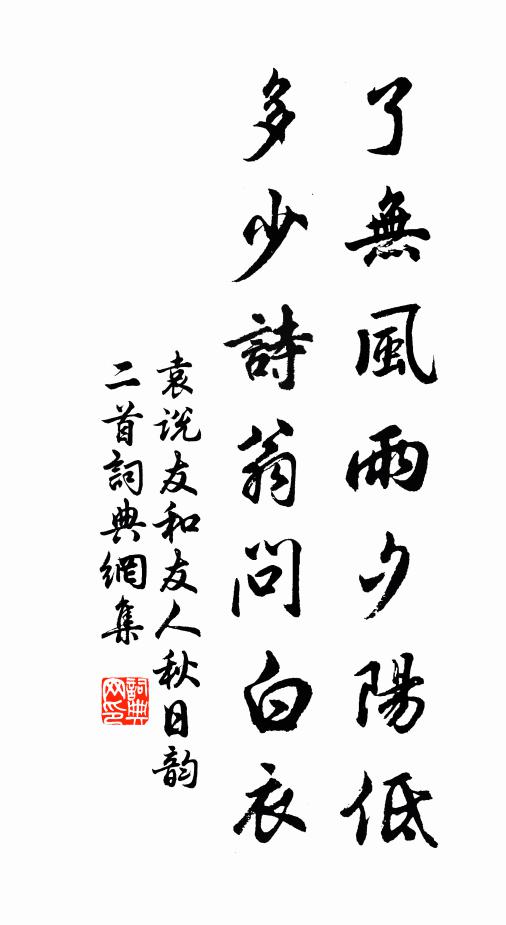 了無風雨夕陽低
多少詩翁問白衣
袁说友和友人秋日韵
二首詞典網集
詞典网印